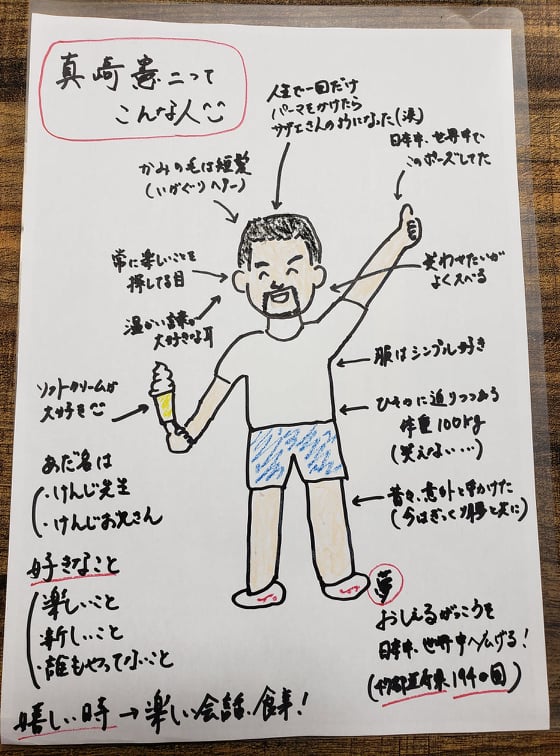 真崎憲二って
こんな人
人生で一回だけ
パーマをかけたら
サザエさんのようになった(涙)
日本中、世界中で
このポーズしてた
かみの毛は短髪
(いがぐりヘアー)
常に楽しいことを
探してる目
笑わせたいが
よくスベる
温かい言葉が
大好きな耳
服はシンプル好き
ソフトクリームが
大好き
ひそかに迫りつつある
体重100kg
(笑えない…)
あだ名は
・けんじ先生
・けんじお兄さん
昔は意外と歩けた
(今はぎっくり腰と共に)
好きなこと
楽しいこと
・新しいこと
・誰もやってないこと
夢
おしえるがっこうを
日本中、世界中へ広げる!
(47都道府県、194ヵ国)
嬉しい時→楽しい会話、食事!